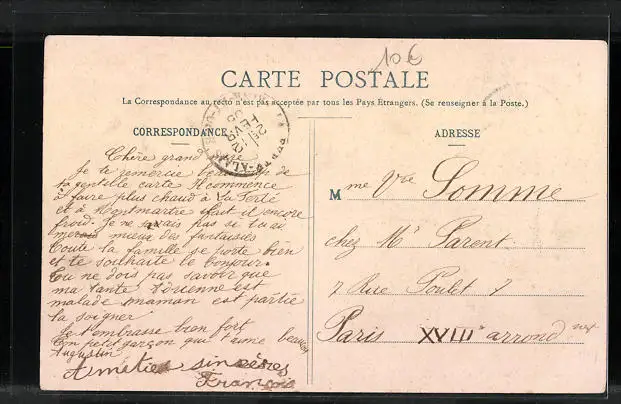 10€
CARTE POSTALE
La Correspondance au recto n'est pas acceptée par tous les Pays Etrangers. (Se renseigner à la Poste.)
CORRESPONDANCE
Chère grand mère
Je te remercie beaucoup de
ta gentille carte Il commence
à faire plus chaud à La Ferté
et à Montmartre fait il encore
froid. Je ne savais pas si tu au
merais mieux des fantaisies
Toute la famille se porte bien
et te souhaite le bonjour.
Tu ne dois pas savoir que
ma tante est
malade maman est partie
la soigner
Je t'embrasse bien fort
Ton petit garçon qui t'aime beaucoup
Augustin
Amitiés sincères
François
ADRESSE
Mme Vve Somme
chez Mr Parent
7 Rue Poulet 7
Paris XVIIIe arrond